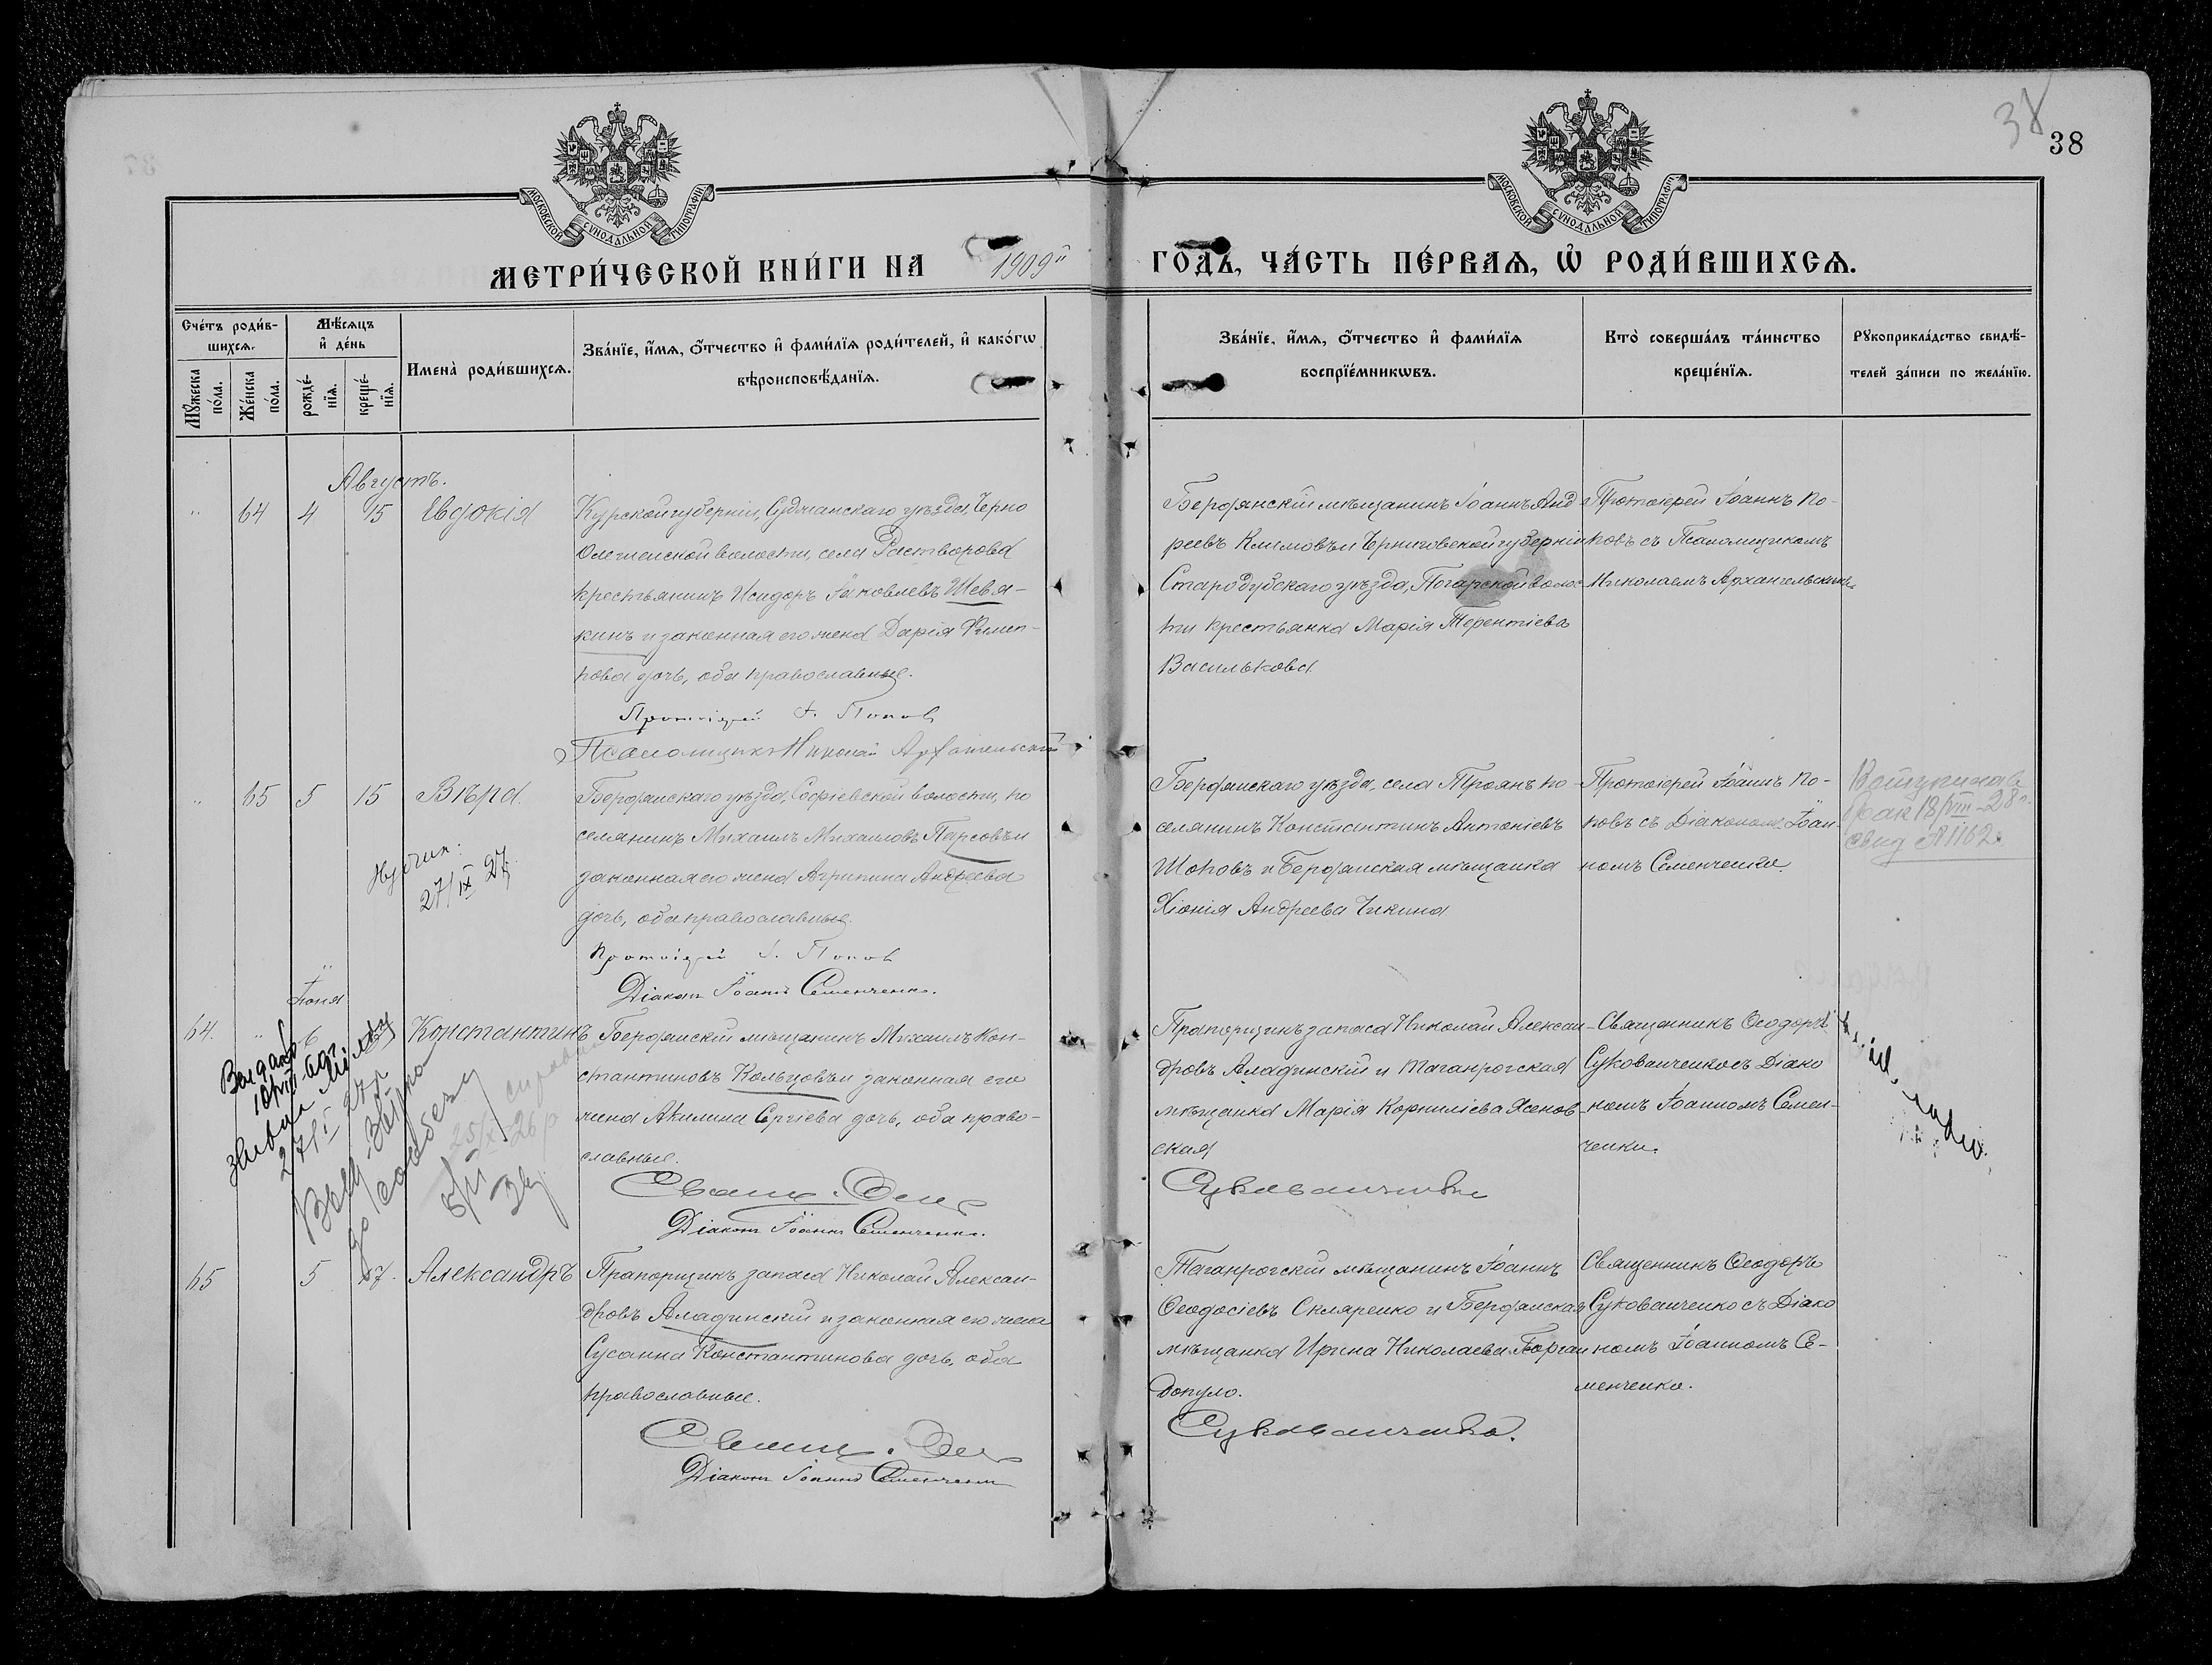 38
38
МОСКОВСКОЙ СѴНОДАЛЬНОЙ ТИПОГРАФІИ
МОСКОВСКОЙ СѴНОДАЛЬНОЙ ТИПОГРАФІИ
МЕТРИ́ЧЕСКОЙ КНИ́ГИ НА 1909й ГО́ДЪ, ЧА́СТЬ ПЕ́РВАѦ, Ѡ҆ РОДИ́ВШИХСѦ.
Сче́тъ роди́в-
шихсѧ.
Мꙋ́жеска по́ла.
Же́нска по́ла.
Мѣ́сѧцъ и҆ де́нь
рожде́-нїѧ.
креще́-нїѧ.
Имена̀ роди́вшихсѧ.
Зва́нїе, и҆́мѧ, ѻ҆́тчество и҆ фами́лїѧ роди́телей, и҆ како́гѡ
вѣроисповѣ́данїѧ.
Зва́нїе, и҆́мѧ, ѻ҆́тчество и҆ фами́лїѧ
воспрїе́мникѡвъ.
Кто̀ соверша́лъ та́инство
креще́нїѧ.
Рꙋкоприкла́дство свидѣ́-
телей за́писи по жела́нїю.
Августъ.
" 64 4 15 Евдокія
Курской губерніи, Суджанскаго уѣзда, Черно
Олешенской волости, села Растворова
крестьянинъ Исидоръ Іаковлевъ Шевя-
кинъ и законная его жена Дарія Филип-
пова дочь, оба православные.
Протоіерей І. Поповъ
Псаломщикъ Николай Архангельскій
Бердянскій мѣщанинъ Іоаннъ Анд-
реевъ Климовъ и Черниговской губерніи
Стародубскаго уѣзда, Погарской волос-
ти крестьянка Марія Терентіева
Василькова
Протоіерей Іоаннъ По-
повъ съ Псаломщикомъ
Николаемъ Архангельскимъ
" 65 5 15 Вѣра
Бердянскаго уѣзда, Софіевской волости, по
селянинъ Михаилъ Михаиловъ Парсовъ и
законная его жена Агрипина Андреева
дочь, оба православные.
Протоіерей І. Поповъ
Діаконъ Іоаннъ Семенченко.
27/IX 27
Бердянскаго уѣзда, села Троянъ по-
селянинъ Константинъ Антоніевъ
Шоповъ и Бердянская мѣщанка
Хіонія Андреева Чикина
Протоіерей Іоаннъ По-
повъ съ Діакономъ Іоан-
номъ Семенченко.
брак 18/VIII-28 г.
свид № 1162
Іюня
64. " 6 Константинъ
Бердянскій мѣщанинъ Михаилъ Кон-
стантиновъ Кольцовъ и законная его
жена Акилина Сергіева дочь, оба право-
славные.
Діаконъ Іоаннъ Семенченко.
Прапорщикъ запаса Николай Алексан-
дровъ Аладинскій и Таганрогская
мѣщанка Марія Корниліева Ясенов-
ская
Сукованченко
Священникъ Ѳеодоръ
Сукованченко съ Діако
номъ Іоанномъ Семен-
ченки.
65 5 Александръ
Прапорщикъ запаса Николай Алексан-
дровъ Аладинскій и законная его жена
Сусанна Константинова дочь, оба
православные.
Діаконъ Іоаннъ Семенченко
Таганрогскій мѣщанинъ Іоаннъ
Ѳеодосіевъ Скляренко и Бердянская
мѣщанка Ирина Николаева Іорган
допуло.
Сукованченко.
Священникъ Ѳеодоръ
Сукованченко съ Діако
номъ Іоанномъ Се-
менченко.